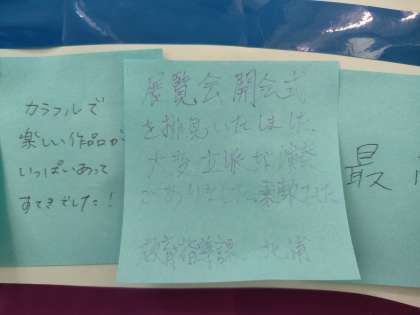 カラフルで
楽しい作品が
いっぱいあって
すてきでした!
展覧会開会式
を拝見いたしました。
立派な
ありました。
教育指導課 北浦
最